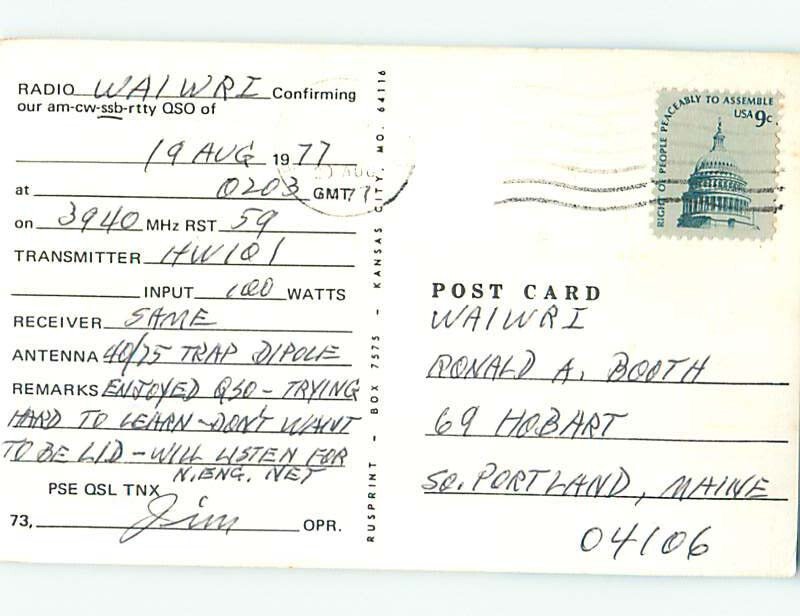 RADIO WA1WRI Confirming
our am-cw-ssb-rtty QSO of
19 AUG 1977
at 0203 GMT
on 3940 MHz RST 59
TRANSMITTER HW101
INPUT 100 WATTS
RECEIVER SAME
ANTENNA 40/75 TRAP DIPOLE
REMARKS ENJOYED QSO - TRYING
HARD TO LEARN - DON'T WANT
TO BE LID - WILL LISTEN FOR
N. ENG. NET
PSE QSL TNX
73, Jim OPR.
RUSPRINT - BOX 7575 - KANSAS CITY, MO. 64116
RIGHT OF PEOPLE PEACEABLY TO ASSEMBLE
USA 9c
POST CARD
WA1WRI
RONALD A. BOOTH
69 HOBART
SO. PORTLAND, MAINE
04106